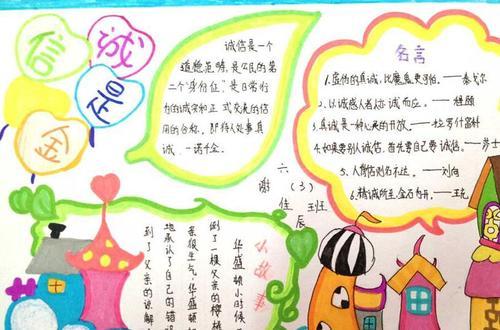 诚信是金
诚信是一个
道德范畴,是公民的第
二个"身份证",是日常行
为的诚实和正式交流的
信用的合称,即待人处事真
诚、一诺千金
名言
1.虚伪的真诚,比魔鬼更可怕。——泰戈尔
2.以诚感人者,人亦诚而应。——程颐
3.真诚是一种心灵的开放。——拉罗什富科
4.如果要别人诚信,首先要自己要诚信。——莎士
5.人背信则名不达。——刘向
6.精诚所至,金石为开。——王充
六(3)班
谢佳辰
小故事
华盛顿小时候
倒了一棵父亲的樱桃
亲很生气,华盛顿
地承认了自己的错
到了父亲的谅解